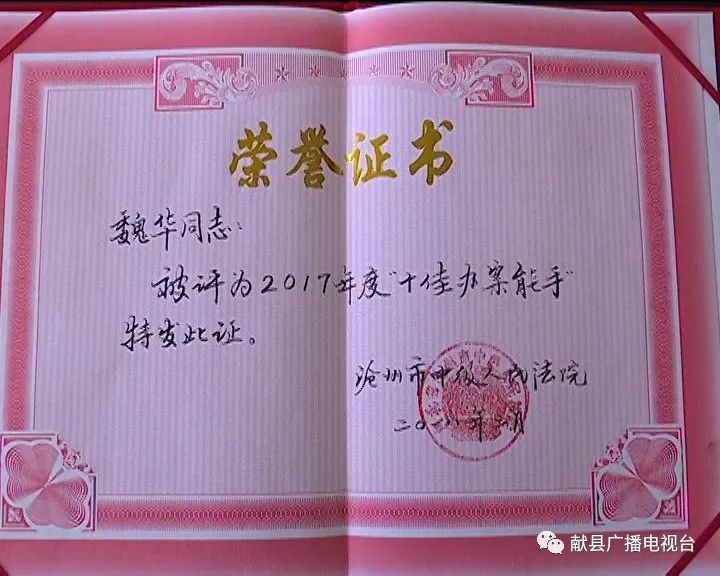 荣誉证书
魏华同志：
被评为2017年度"十佳办案能手"
特发此证。
沧州市中级人民法院
二〇一八年二月
献县广播电视台